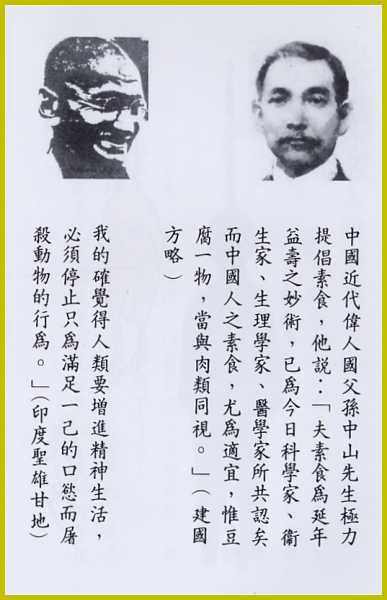 中國近代偉人國父孫中山先生極力
提倡素食，他說：「夫素食為延年
益壽之妙術，已為今日科學家、衞
生家、生理學家、醫學家所共認矣
而中國人之素食，尤為適宜，惟豆
腐一物，當與肉類同視。」（建國
方略）
我的確覺得人類要增進精神生活，
必須停止只為滿足一己的口慾而屠
殺動物的行為。」（印度聖雄甘地）